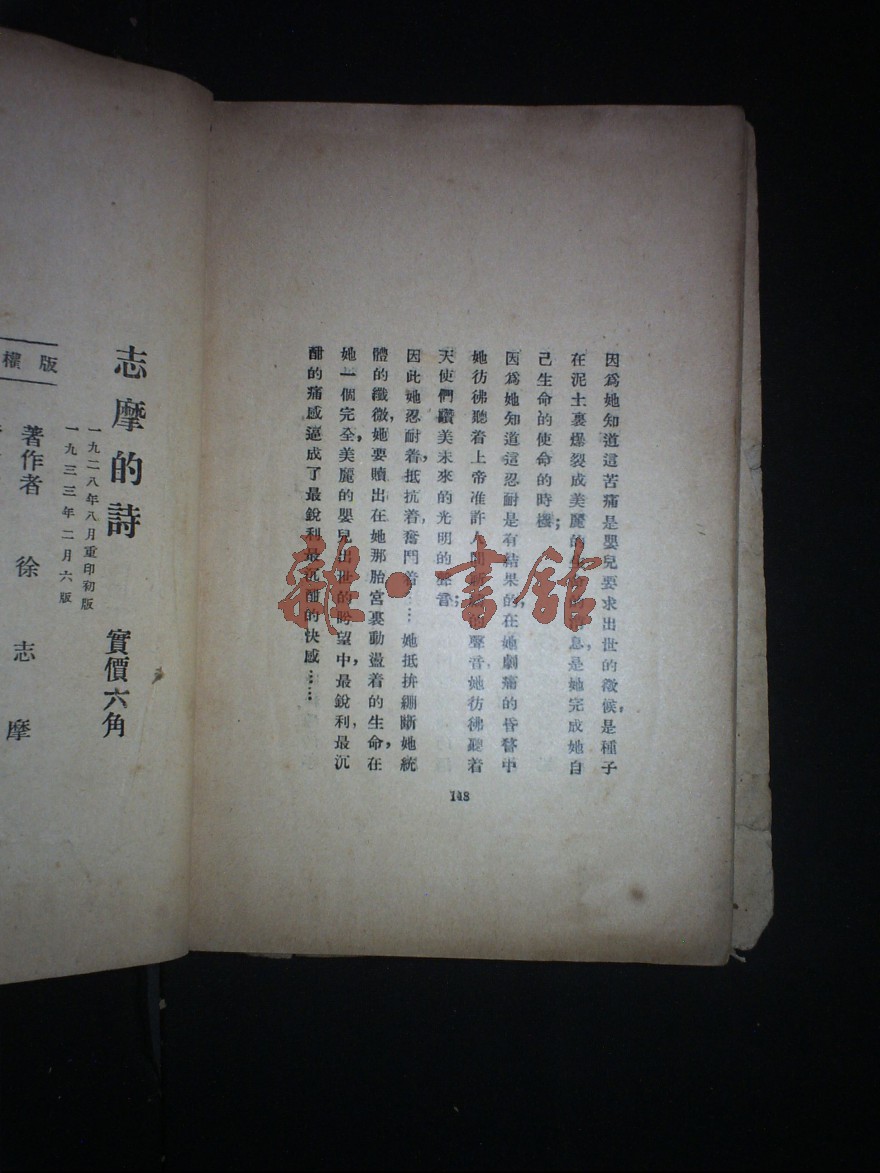 因爲她知道這苦痛是嬰兒要求出世的徵候,是種子
在泥土裏爆裂成美麗的生命的息,是她完成她自
己生命的使命的時機;
因爲她知道這忍耐是有結果的,在她劇痛的昏瞀中
她彷彿聽着上帝准許人間祈禱的聲音,她彷彿聽着
天使們讚美未來的光明的聲音;
因此她忍耐着,抵抗着,奮鬥着……她抵拚繃斷她統
體的纖微,她要贖出在她那胎宮裏動盪着的生命,在
她一個完全,美麗的嬰兒出世的盼望中,最銳利,最沉
酣的痛感逼成了最銳利最沉酣的快感……
148
雜·書館
志摩的詩 實價六角
一九二八年八月重印初版
一九三三年二月六版
版權
著作者 徐志摩